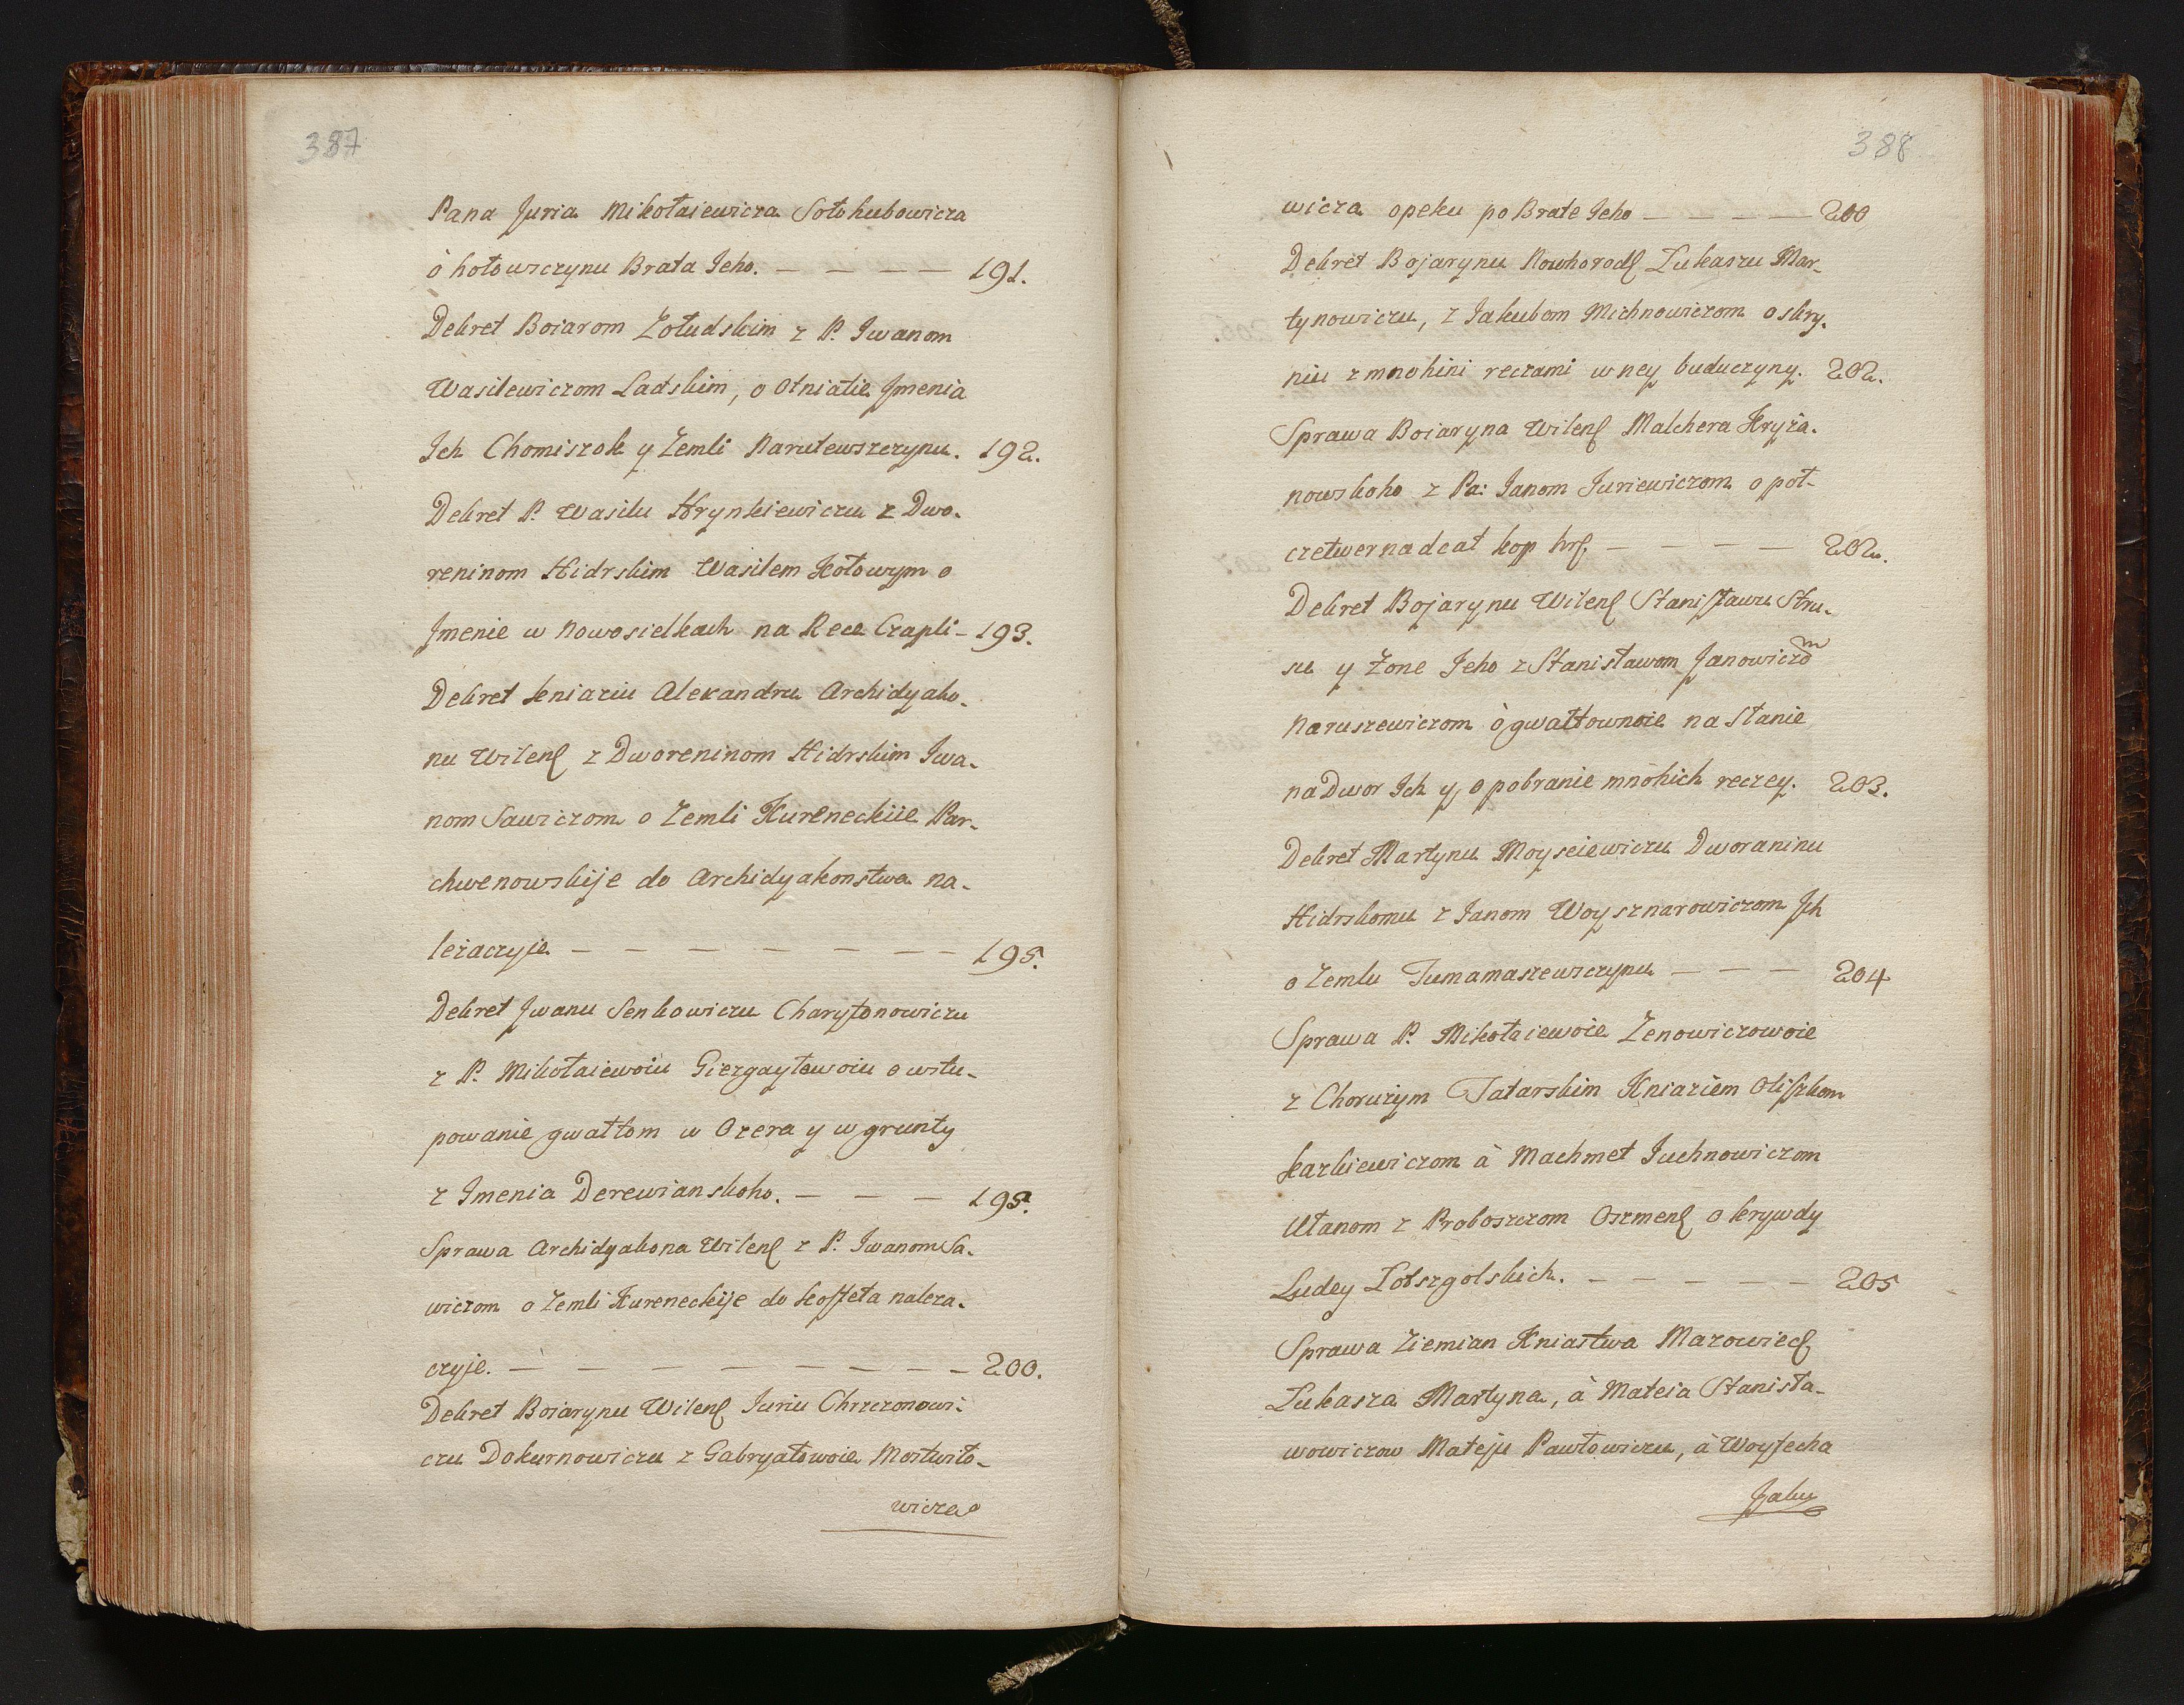 387
Pana Juria Mikołaiewicza Sołohubowicza
ò hołowszczynu Brata Jeho. — — — — 191.
Dekret Boiarom Zołudskim z P. Iwanom
Wasilewiczom Ladskim, o Otniatie Jmenia
Ich Chomiszok y Zemli Narutewszczynu. 192.
Dekret P. Wasilu Hrynkiewiczu z Dwo-
reninom Hidrskim Wasilem Kołowym o
Jmenie w Nowosielkach na Rece Czapli – 193.
Dekret kniaziu Alexandru Archidyako-
nu Wilenſ z Dworeninom Hidrskim Iwa-
nom Sawiczom o Zemli Kureneckiie Par-
chwenowskije do Archidyakonstwa na-
leżaczyje — — — — — — — 195.
Dekret Jwanu Senkowiczu Charytonowiczu
z P. Mikołaiewoiu Giezgaytowoiu o wstu-
powanie gwałtom w Ozera y w grunty
z Imenia Derewianskoho. — — — 195.
Sprawa Archidyakona Wilenſ z P. Iwanom Sa-
wiczom o Zemli Kureneckije do kosteła naleza-
czyje. — — — — — — — 200.
Dekret Boiarynu Wilenſ Juriu Chrzczonowi-
czu Dokurnowiczu z Gabryałowoie Mostwiło-
wicza
388
wicza opeku po Brate Jeho — — — — 200
Dekret Bojarynu Nowhorodſ Łukaszu Mar-
tynowiczu, z Jakubom Michnowiczom o skry-
niu z mnohini reczami w ney buduczyny. 202.
Sprawa Boiaryna Wilenſ Malchera Kryża-
nowskoho z Pa: Janom Juriewiczom o poł-
czetwernadcat kop hrſ — — — — 202.
Dekret Bojarynu Wilenſ Stanisławu Stru-
su y Żone Jeho z Stanisławom Janowiczom
Naruszewiczom ò gwałtownoie nastanie
na Dwor Ich y, o pobranie mnohich reczey. 203.
Dekret Martynu Moysciewiczu Dworaninu
Hidrskomu z Janom Woysznarowiczom Jch
o Zemlu Tumamaszewiczynu — — — 204
Sprawa P. Mikołaiewoie Zenowiczowoie
z Chorużym Tatarskim Kniaziem Oliszkom
kazkiewiczom à Machmet Juchnowiczom
Ułanom z Proboszczom Oszmenſ o krywdy
Ludey Łobszgolskich. — — — — — 205
Sprawa Ziemian Kniastwa Mazowiecſ
Łukasza Martyna, à Mateia Stanisła-
wowiczow Mateju Pawłowiczu, à Woytecha
Jaku